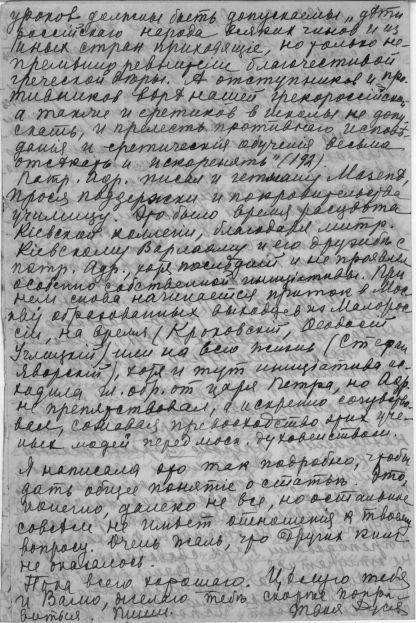 уроков должны быть допускаемы "дѣти
россійскаго народа всяких чинов и из
иных стран приходящіе, но только не-
премѣнно ревнители благочестивой
греческой вѣры. А отступников и про-
тивников вѣрѣ нашей грекороссійской,
а также и еретиков в школы не допу-
скать, и прелесть противнаго исповѣ-
данія и еретическія обученія весьма
отсѣкать и искоренять" (192)
Патр. Адр. писал и гетману Мазепѣ
прося поддержки и покровительства
училищу. Это было время расцвѣта
Кіевской коллегіи, благодаря митр.
Кіевскому Варлааму и его дружбѣ с
патр. Адр., хотя послѣдній и не проявлял
особенно собственной иниціативы. При
нем снова начинается приток в Мос-
кву образованных выходцев из Малорос-
сіи, на время (Кроковскій,
Углицкій) или на всю жизнь (Стефан
Яворскій), хотя и тут иниціатива ис-
ходила гл. обр. от царя Петра, но Адр.
не препятствовал, а искренно сочувствовал
всему, сознавая превосходство этих уче-
ных людей перед моск. духовенством.
Я написала это так подробно, чтобы
дать общее понятіе о статьѣ. Это,
конечно, далеко не все, но остальное
совсѣм не имѣет отношенія к твоему
вопросу. Очень жаль, что других книг
не оказалось.
Ну, всего хорошаго. Цѣлую тебя
и Валю, желаю тебѣ скорѣе попра-
виться. Пиши. Твоя Дуся